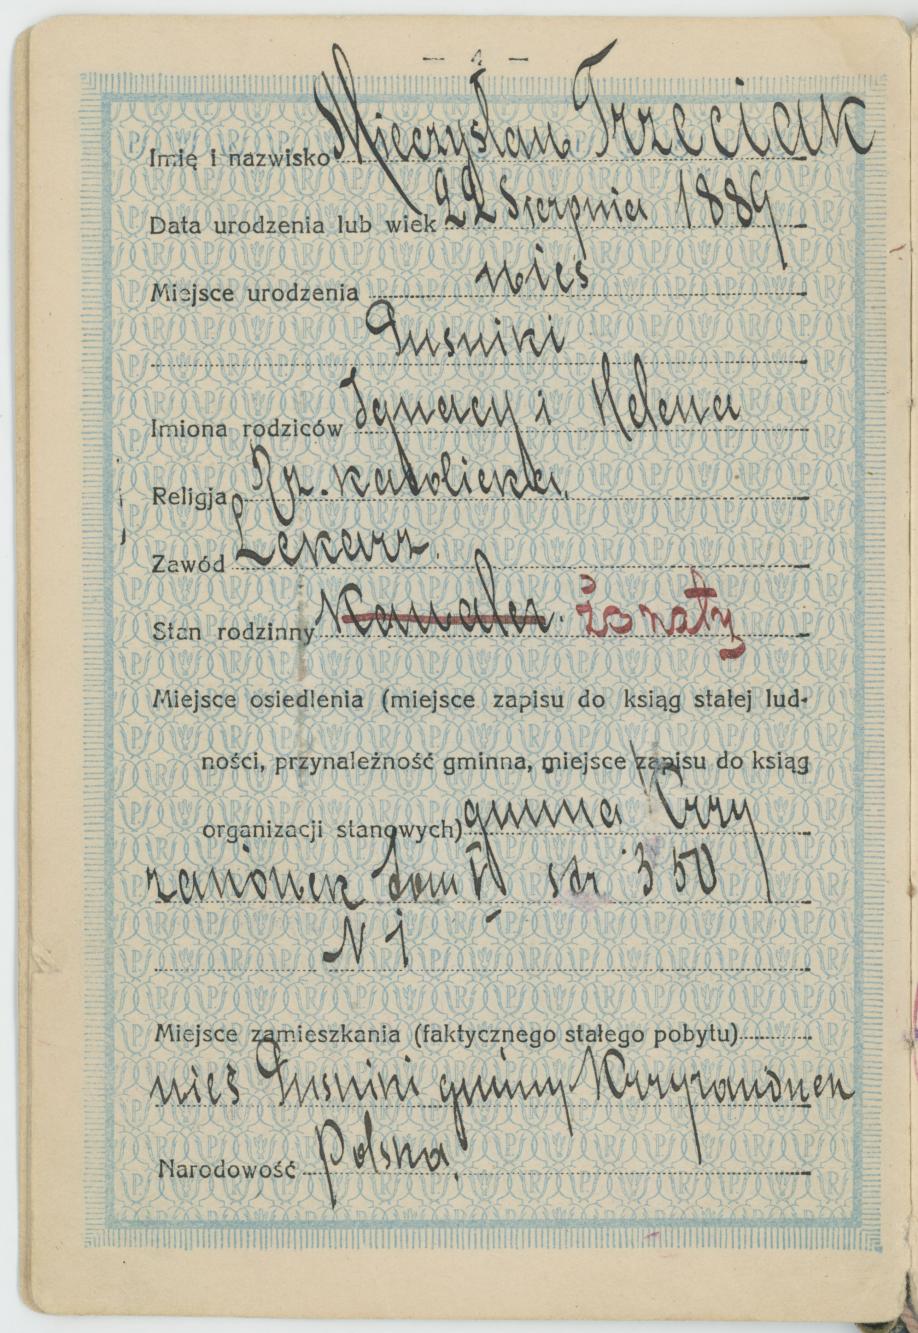 — 4 —
Imię i nazwisko Mieczysław Trzeciak
Data urodzenia lub wiek 22 Sierpnia 1889
Miejsce urodzenia wieś
Puśniki
Imiona rodziców Ignacy i Helena
Religja Rz. katolicka.
Zawód Lekarz.
Stan rodzinny Kawaler. żonaty
Miejsce osiedlenia (miejsce zapisu do ksiąg stałej lud-
ności, przynależność gminna, miejsce zapisu do ksiąg
organizacji stanowych) gmina Krzy
zanówek tom IV str 350
N 1
Miejsce zamieszkania (faktycznego stałego pobytu)
wieś Puśniki gminy Krzyzanówek
Narodowość Polska.